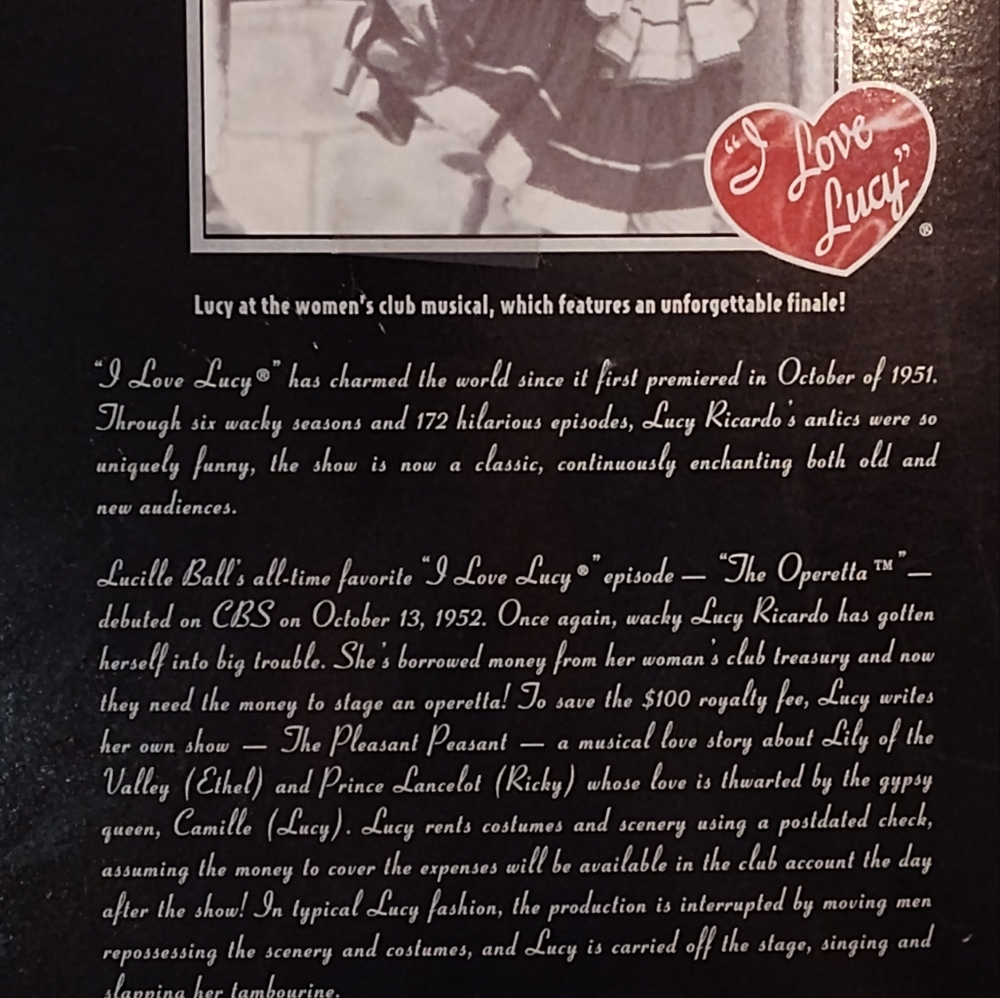 "I Love
Lucy"
®
Lucy at the women's club musical, which features an unforgettable finale!
"I Love Lucy®" has charmed the world since it first premiered in October of 1951.
Through six wacky seasons and 172 hilarious episodes, Lucy Ricardo's antics were so
uniquely funny, the show is now a classic, continuously enchanting both old and
new audiences.
Lucille Ball's all-time favorite "I Love Lucy®" episode — "The Operetta™" —
debuted on CBS on October 13, 1952. Once again, wacky Lucy Ricardo has gotten
herself into big trouble. She's borrowed money from her woman's club treasury and now
they need the money to stage an operetta! To save the $100 royalty fee, Lucy writes
her own show — The Pleasant Peasant — a musical love story about Lily of the
Valley (Ethel) and Prince Lancelot (Ricky) whose love is thwarted by the gypsy
queen, Camille (Lucy). Lucy rents costumes and scenery using a postdated check,
assuming the money to cover the expenses will be available in the club account the day
after the show! In typical Lucy fashion, the production is interrupted by moving men
repossessing the scenery and costumes, and Lucy is carried off the stage, singing and
slapping her tambourine.